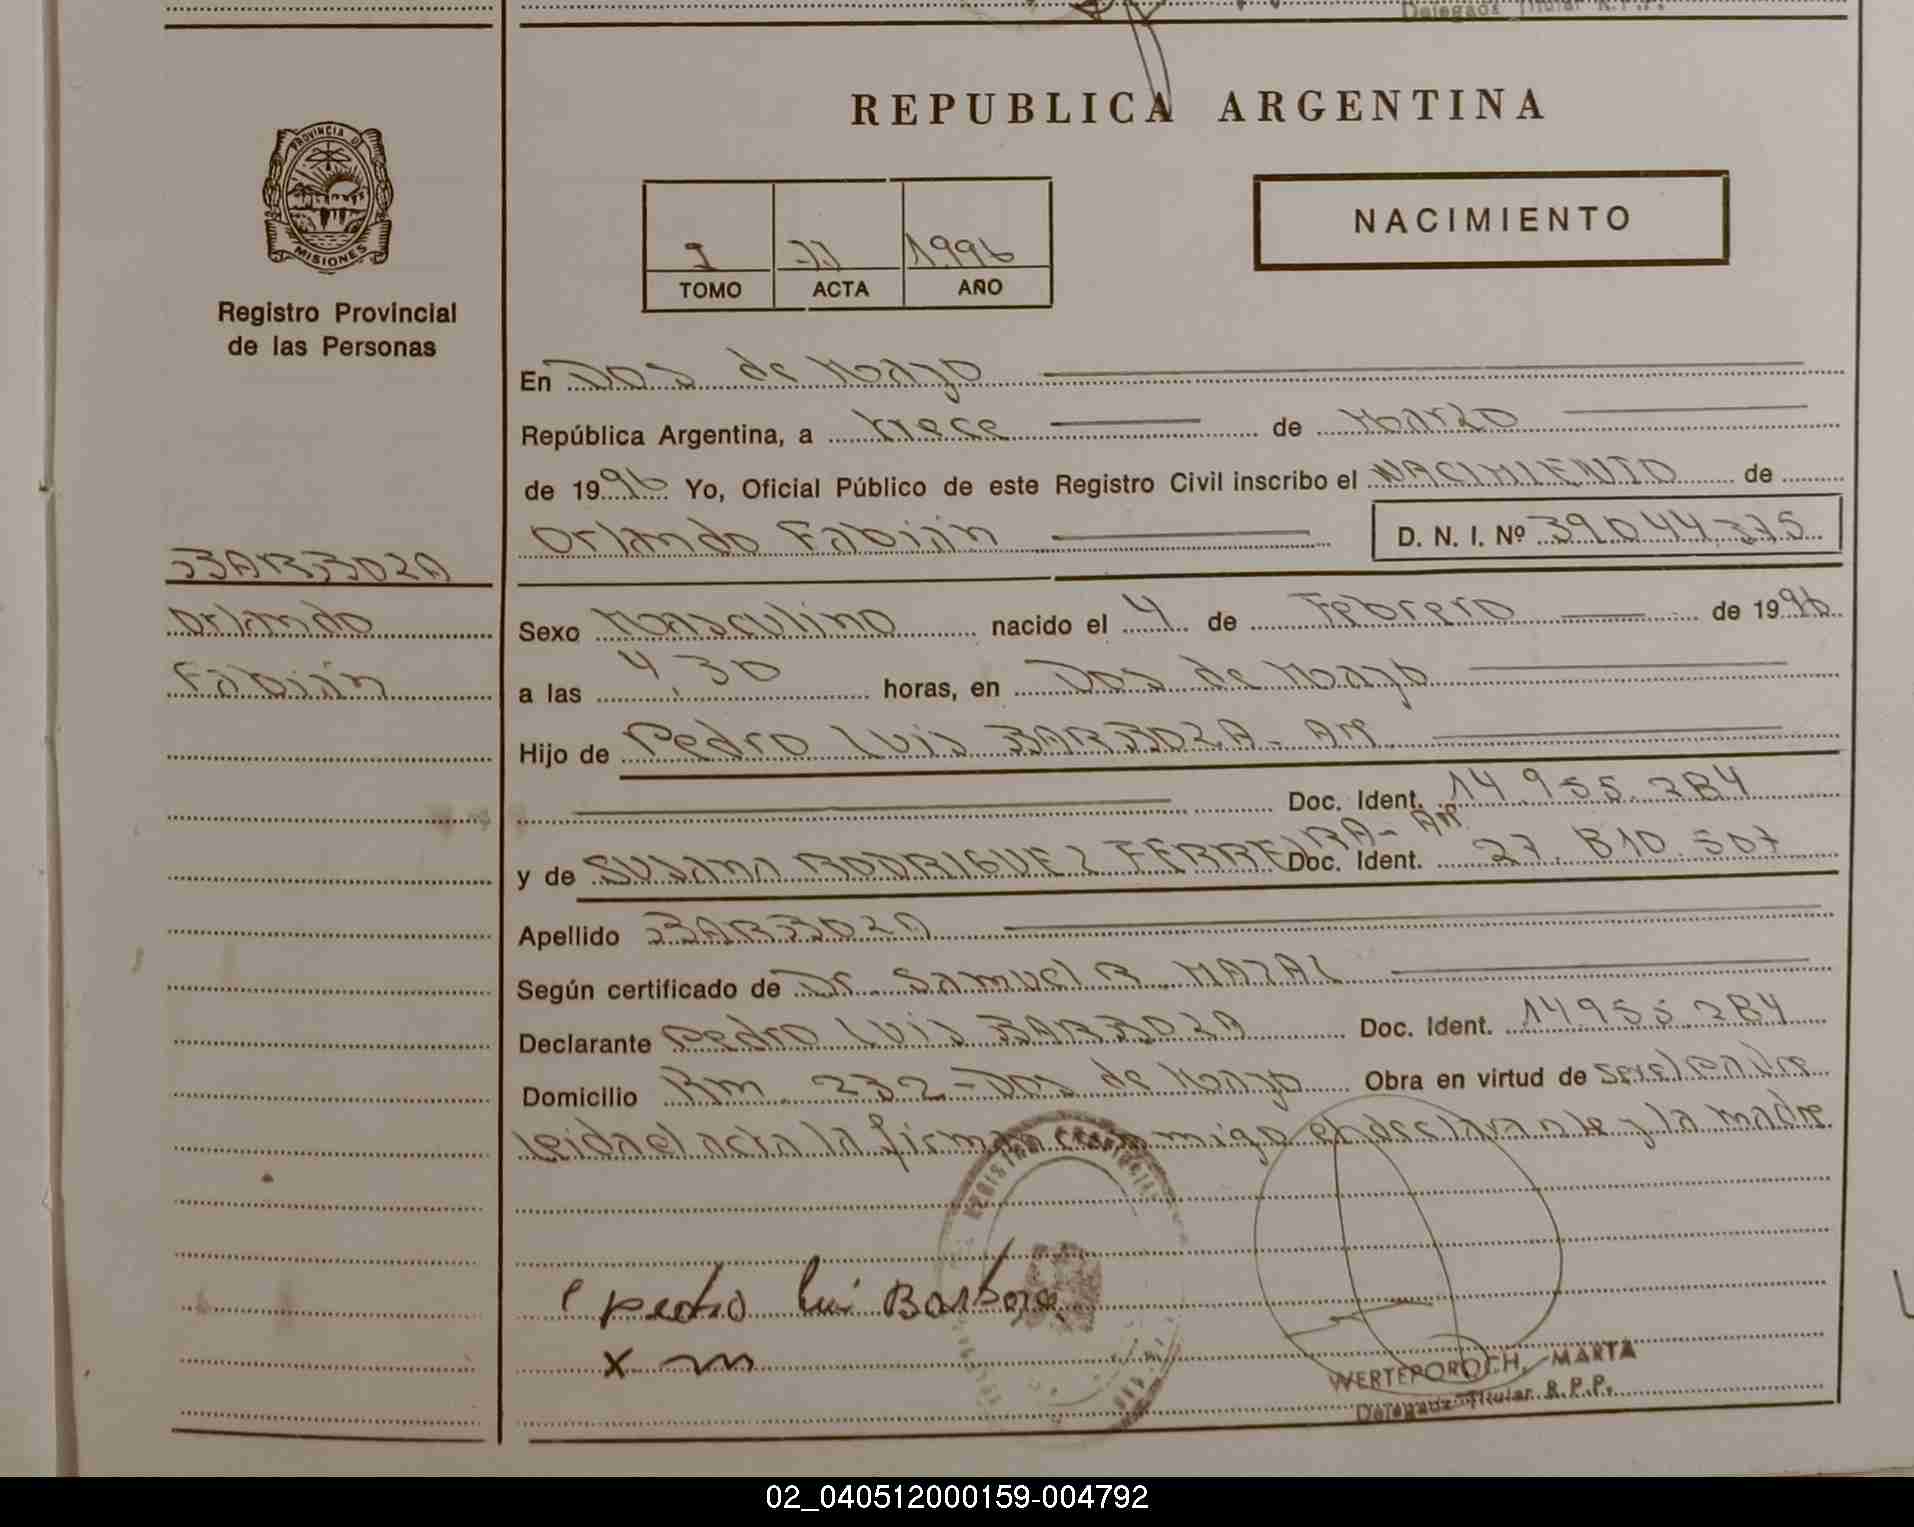 Delegada Titular R.P.P.
REPUBLICA ARGENTINA
PROVINCIA DE
MISIONES
Registro Provincial
de las Personas
NACIMIENTO
I 11 1996
TOMO ACTA AÑO
En Dos de Mayo
República Argentina, a trece de Marzo
de 1996 Yo, Oficial Público de este Registro Civil inscribo el NACIMIENTO de
Orlando Fabián D. N. I. Nº 39.044.375
BARBOZA
Orlando
Fabián
Sexo Masculino nacido el 4 de Febrero de 1996
a las 4,30 horas, en Dos de Mayo
Hijo de Pedro Luis BARBOZA - Ar.
Doc. Ident. 14.955.284
y de Susana RODRIGUEZ FERREIRA - Ar. Doc. Ident. 27.810.507
Apellido BARBOZA
Según certificado de Dr. Samuel R. MAZAL
Declarante Pedro Luis BARBOZA Doc. Ident. 14955.284
Domicilio Km. 232 - Dos de Mayo Obra en virtud de ser el padre
leida el acta la firman conmigo el declarante y la madre
Pedro Luis Barboza
x m
WERTEPOROCH, MARTA
Delegada Titular R.P.P.
02_040512000159-004792